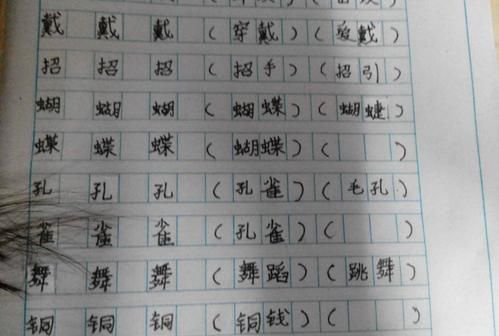 戴 戴 戴 (穿戴) (爱戴)
招 招 招 (招手) (招引)
蝴 蝴 蝴 (蝴蝶) (蝴蜨)
蝶 蝶 蝶 (蝴蝶) ( )
孔 孔 孔 (孔雀) (毛孔)
雀 雀 雀 (孔雀) ( )
舞 舞 舞 (舞蹈) (跳舞)
铜 铜 铜 (铜钱) (